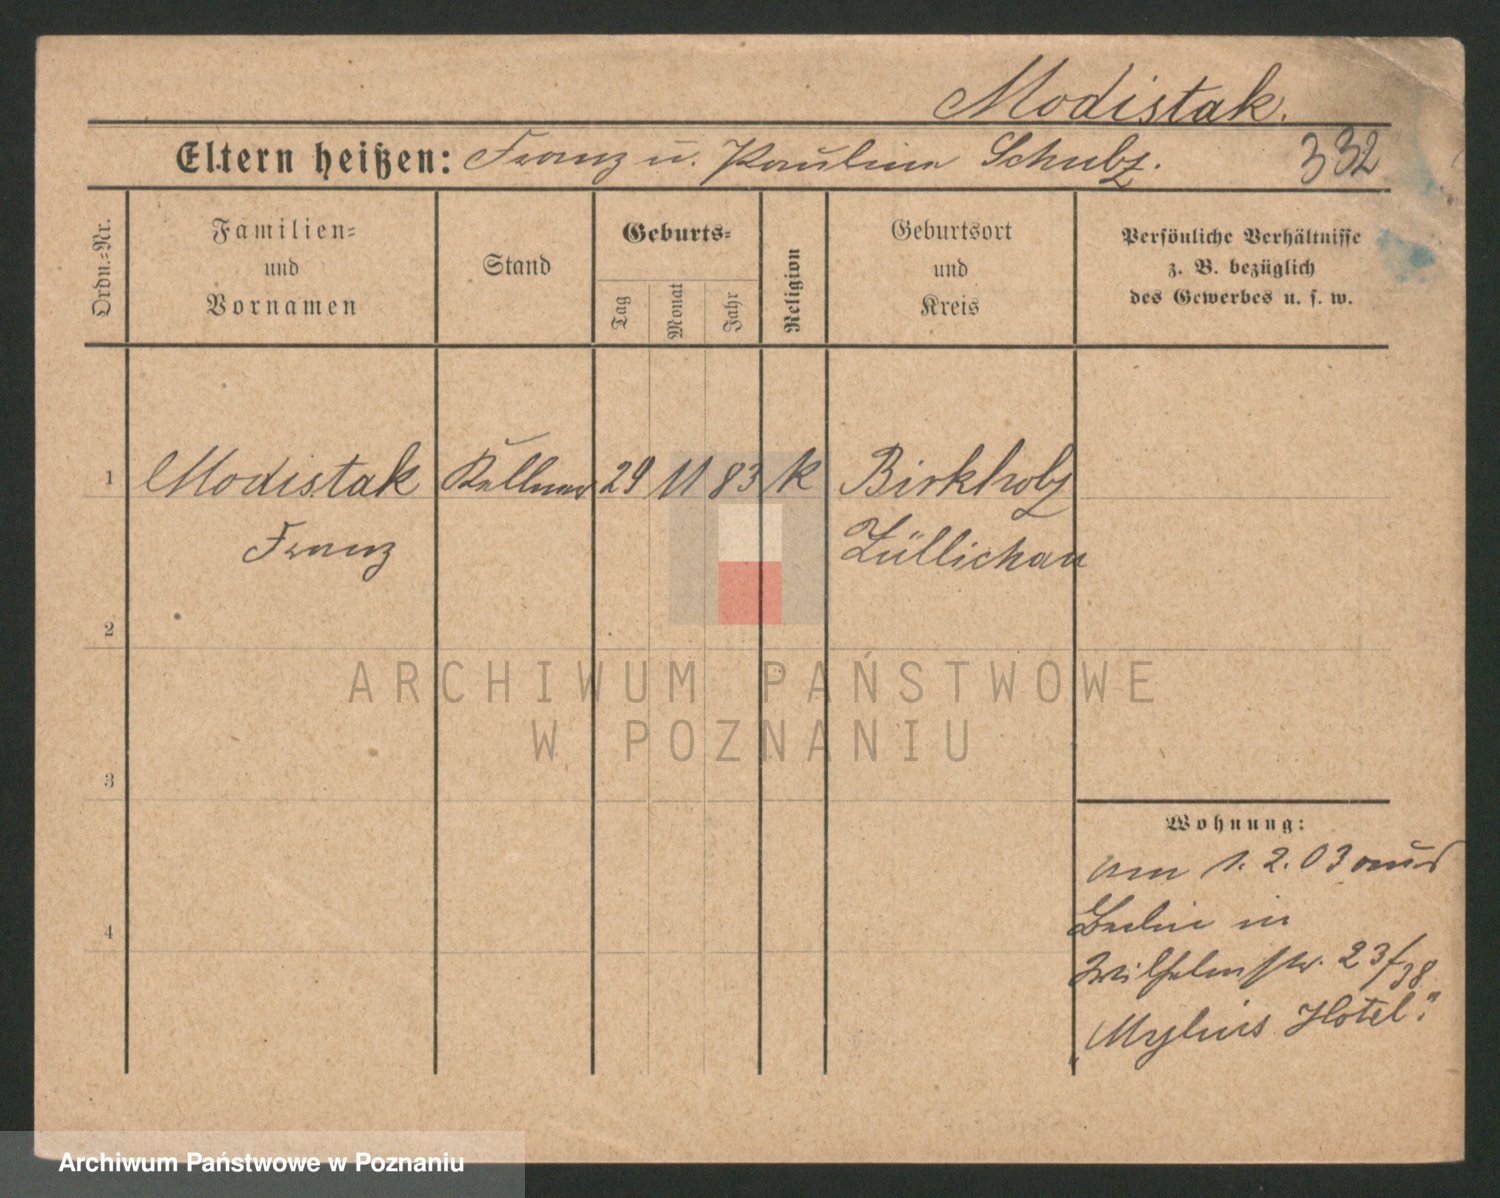 Modistak.
Eltern heißen: Franz u. Pauline Schulz. 332
Ordn.-Nr.
Familien-
und
Vornamen
Stand
Geburts-
Tag
Monat
Jahr
Religion
Geburtsort
und
Kreis
Persönliche Verhältnisse
z. B. bezüglich
des Gewerbes u. s. w.
1 Modistak Kellner 29 11 83 k Birkholz
Franz Züllichau
2
3
4
Wohnung:
am 1. 2. 03 aus
Berlin in
Wilhelmstr. 23/38
„Mylius Hotel."
ARCHIWUM PAŃSTWOWE
W POZNANIU
Archiwum Państwowe w Poznaniu